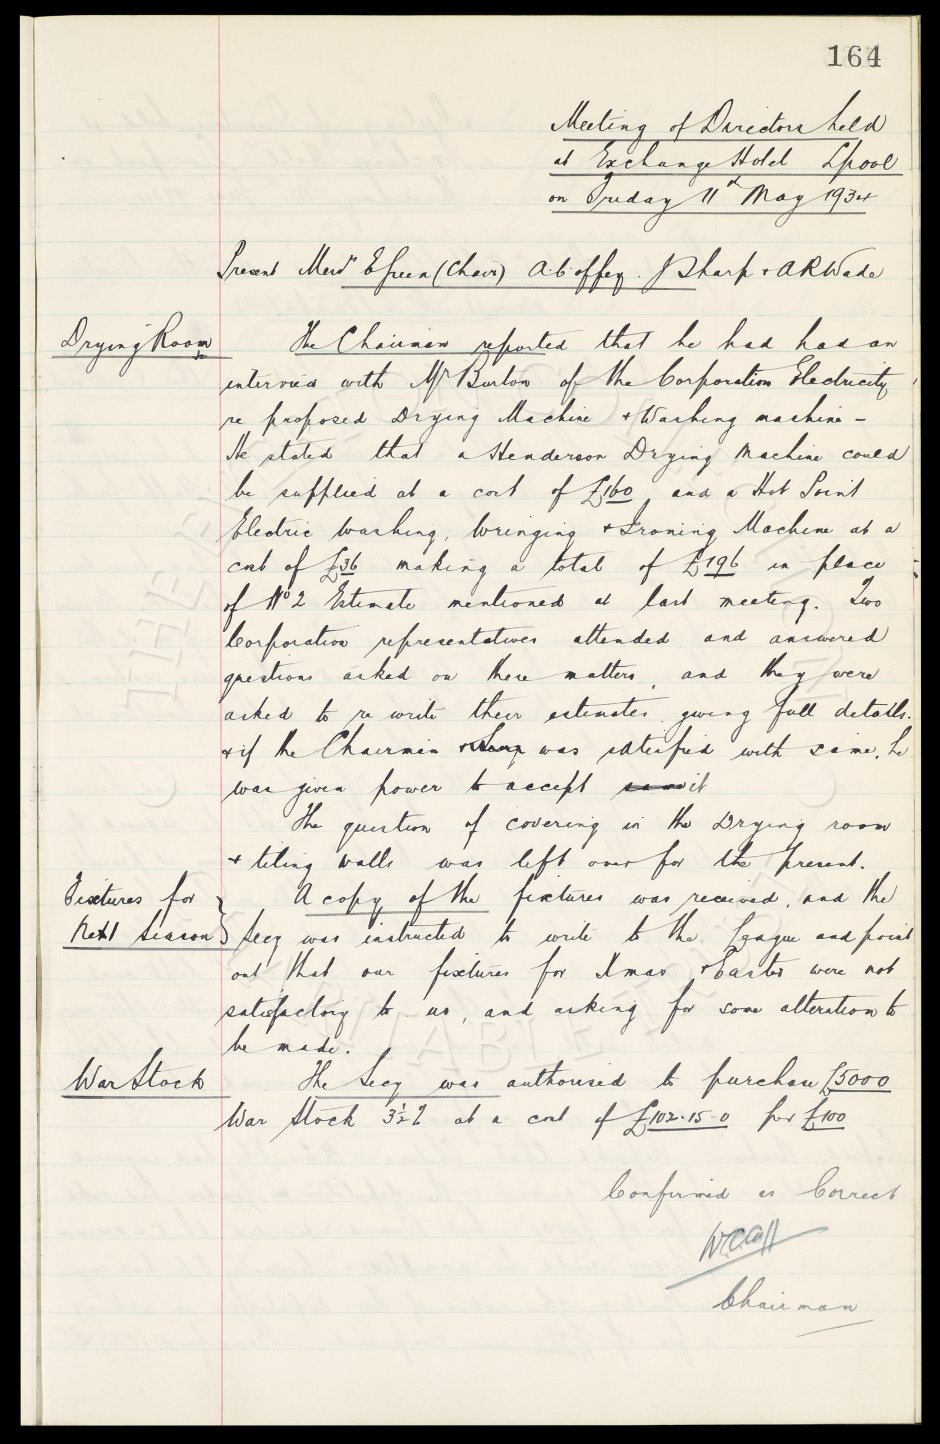 164
Meeting of Directors held
at Exchange Hotel Lpool
on Friday 11th May 1934
Present Messrs E Green (Chair) A Coffey. J Sharp + A R Wade
Drying Room
The Chairman reported that he had had an
interview with Mr Burton of the Corporation Electricity
re proposed Drying Machine + Washing machine -
He stated that a Henderson Drying Machine could
be supplied at a cost of £160, and a Hot Point
Electric Washing, Wringing + Ironing Machine at a
cost of £36 making a total of £196 in place
of No 2 Estimate mentioned at last meeting. Two
Corporation representatives attended and answered
questions asked on these matters, and they were
asked to re write their estimates, giving full details.
+ if the Chairman + Sharp was satisfied with same, he
was given power to accept same it
The question of covering in the Drying room
+ tiling walls was left over for the present.
Fixtures for
Next Season
A copy of the fixtures was received, and the
Secy was instructed to write to the League and point
out that our fixtures for Xmas + Easter were not
satisfactory to us, and asking for some alteration to
be made.
War Stock
The Secy was authorised to purchase £5000
War Stock 3½% at a cost of £102-15-0 per £100
Confirmed as Correct
W C Cuff
Chairman